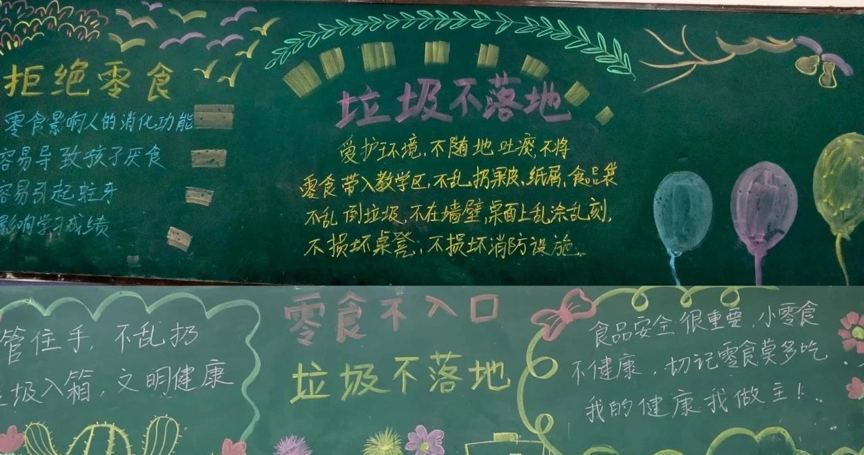 拒绝零食
零食影响人的消化功能
容易导致孩子厌食
容易引起蛀牙
影响学习成绩
垃圾不落地
爱护环境,不随地吐痰,不将
零食带入教学区,不乱扔果皮,纸屑,食品袋
不乱倒垃圾,不在墙壁,桌面上乱涂乱刻,
不损坏桌凳,不损坏消防设施.
管住手,不乱扔
垃圾入箱,文明健康
零食不入口
垃圾不落地
食品安全很重要,小零食
不健康,切记零食莫多吃.
我的健康我做主!